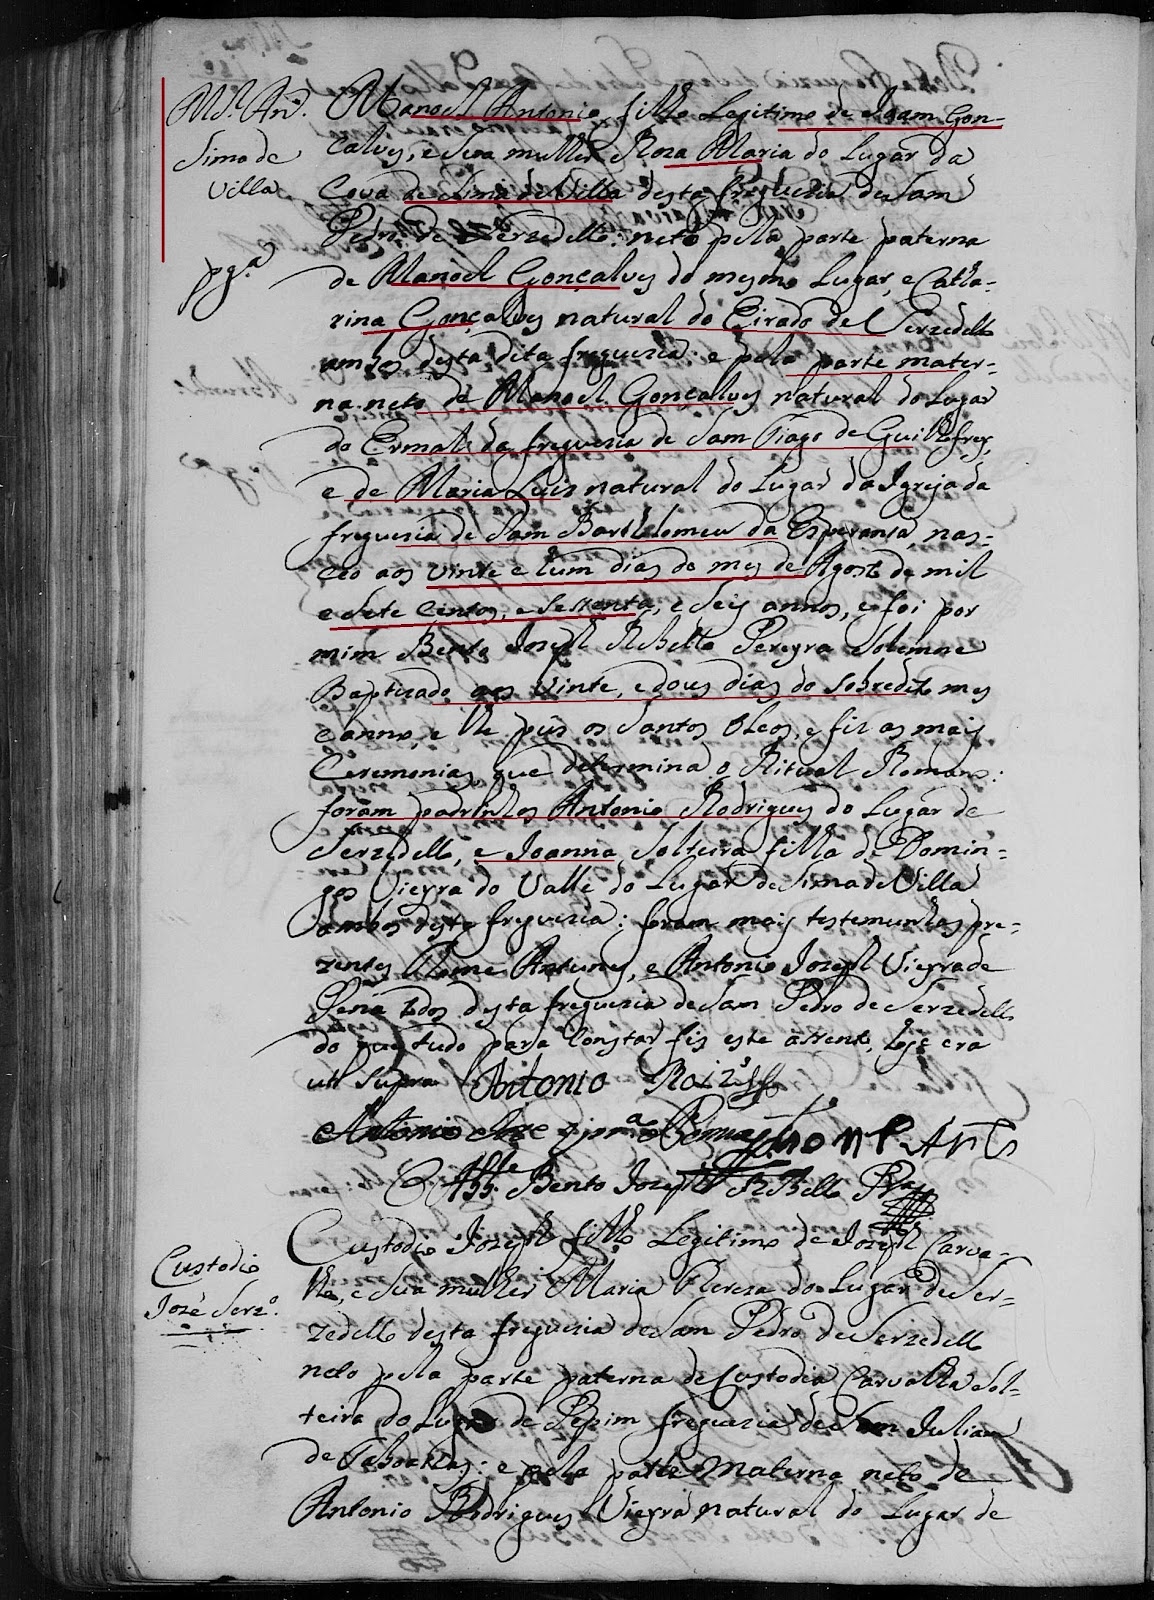 M.el An.to
Simo de
Villa
pg.a
Manoel Antonio filho Legitimo de Joam Gon-
calves, e sua mulher Roza Maria do Lugar da
Cova de Sima de Villa desta Freguezia de Sam
Pedro de Serzedello: neto pela parte paterna
de Manoel Gonçalves do mesmo Lugar, e Catha-
rina Gonçalves natural do Eirado de Serzedello
ambos desta dita freguezia: e pela parte mater-
na neto de Manoel Gonçalves natural do Lugar
do Ermal da freguezia de Sam Tiago de Guilhofrey,
e de Maria Luis natural do Lugar da Igreja da
freguezia de Sam Barthelomeu da Esperansa, nas-
ceo aos vinte e hum dias do mes de Agosto de mil
e sete centos, e sessenta, e seis annos, e foi por
mim Bento Jozeph Rebello Pereyra Solemne
Baptizado aos vinte, e dous dias do sobredito mes
e anno, e lhe pus os Santos Oleos, e fiz as mais
Ceremonias que determina o Ritual Romano:
foram padrinhos Antonio Rodrigues do Lugar de
Serzedello, e Joanna solteira filha de Domin-
gos Vieyra do Valle do Lugar de Sima de Villa
ambos desta freguezia: foram mais testemunhas pre-
zentes Thome Antunes, e Antonio Jozeph Vieyra de
Pena todos desta freguezia de Sam Pedro de Serzedello
do que tudo para Constar fis este assento, hoje era
ut supra Antonio Roiz
Antonio Joze
Abb.e Bento Jozeph Rebello Pra
Custodio
Jozé Serz.o
Custodio Jozeph filho Legitimo de Jozeph Carva-
lho, e sua mulher Maria Thereza do Lugar de Ser-
zedello desta freguezia de Sam Pedro de Serzedello
neto pela parte paterna de Custodia Carvalha sol-
teira do Lugar de Pepim freguezia de Sam Juliam
de Taboadas: e pela parte Materna neto de
Antonio Rodrigues Vieyra natural do Lugar de